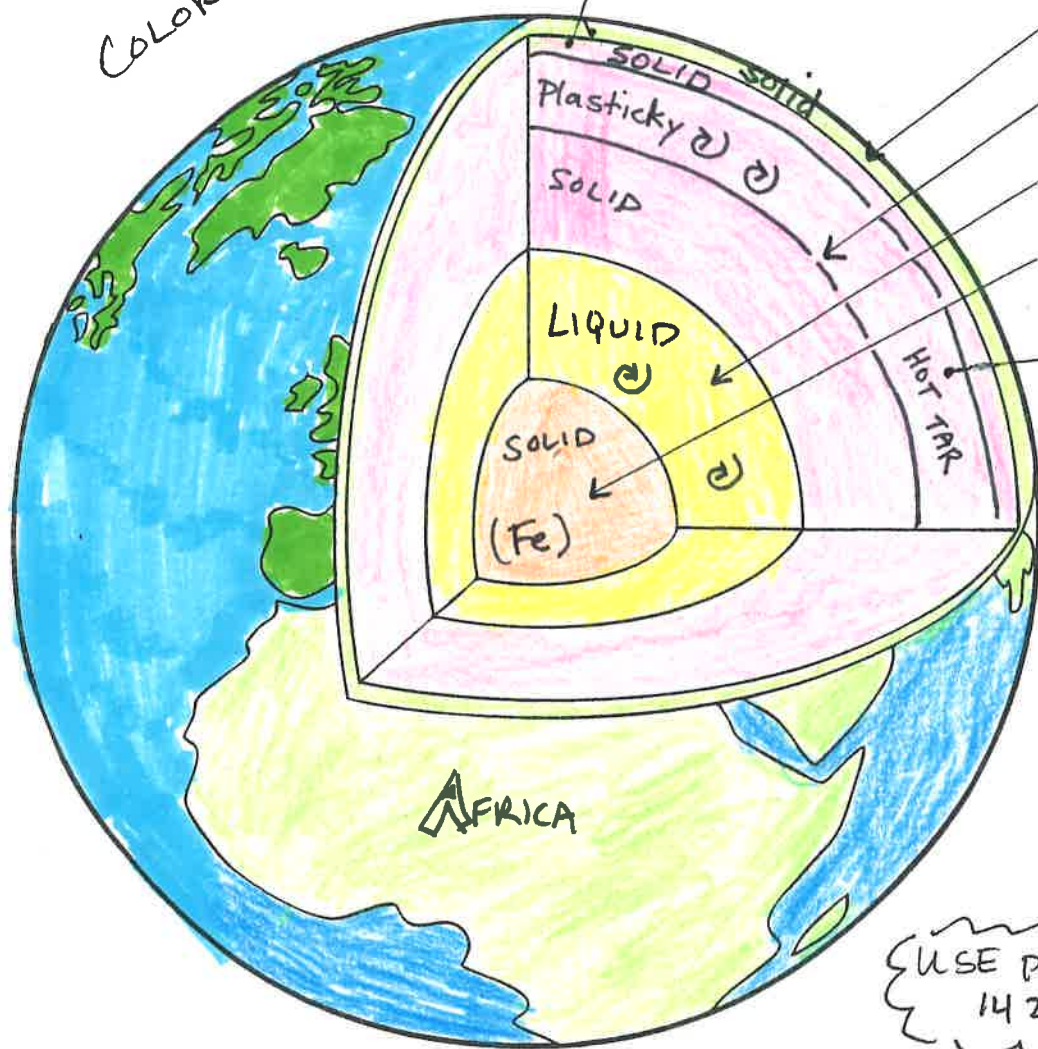 COLOR
SOLID
solid
Plasticky
SOLID
LIQUID
HOT TAR
SOLID
(Fe)
AFRICA
USE P
142